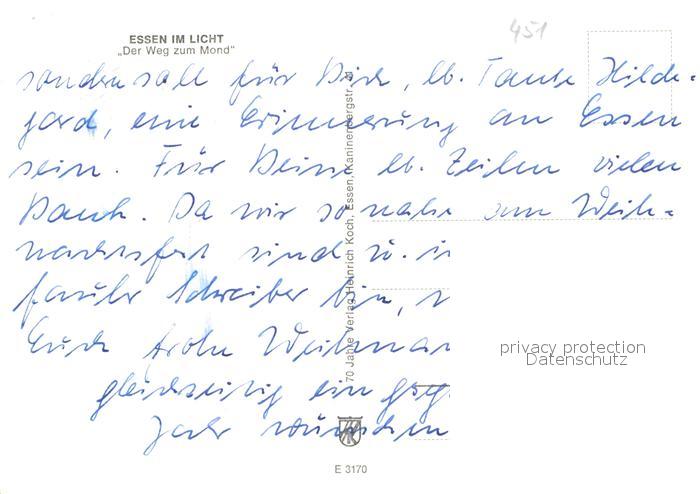 451
ESSEN IM LICHT
„Der Weg zum Mond“
sondern soll für Dich, lb. Tante Hilde=
gard, eine Erinnerung an Essen
sein. Für Deine lb. Zeilen vielen
Dank. Da wir so nahe am Weih=
nachtsfest sind u. i
fauler Schreiber bin,
Euch frohe Weihna
gleichzeitig ein
Jahr wünschen
70 Jahre Verlag Heinrich Koch, Essen, Kaninenbergstr.
privacy protection
Datenschutz
E 3170